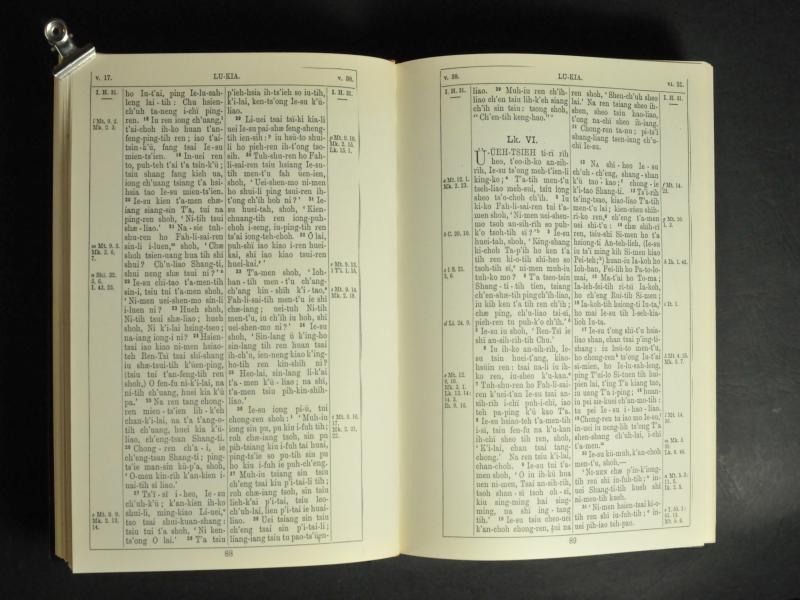 v. 17.
LU-KIA.
v. 38.
I. H. 31.
ho Iu-t'ai, ping Ie-lu-sah-
leng lai-tih: Chu hsien-
ch'uh ta-neng i-chï ping-
ren. 18 Iu ren iong ch'uang,
t'ai-choh ih-ko huan t'an-
feng-ping-tih ren; iao t'ai-
tsin-k'ü, fang tsai Ie-su
mien-ts'ien. 19 In-uei ren
to, puh-teh t'ai t'a tsin-k'ü;
tsiu shang fang kieh ua,
iong ch'uang tsiang t'a hsi-
hsia tao Ie-su mien-ts'ien.
20 Ie-su kien t'a-men chæ-
iang siang-sin T'a, tui na
ping-ren shoh, 'Ni-tih tsui
shæ-liao.' 21 Na-sie tuh-
shu-ren ho Fah-li-sai-ren
sin-li i-luen, shoh, 'Chæ
shoh tsien-uang hua tih shï
shui? Ch'u-liao Shang-ti,
shui neng shæ tsui ni?'
22 Ie-su chï-tao t'a-men-tih
sin-i, tsiu tui t'a-men shoh,
'Ni-men uei-shen-mo sin-li
i-luen ni? 23 Hueh shoh,
Ni-tih tsui shæ-liao; hueh
shoh, Ni k'i-lai hsing-tseo;
na-iang iong-i ni? 24 Hsien-
tsai iao kiao ni-men hsiao-
teh Ren-Tsï tsai shï-shang
iu shæ-tsui-tih k'üen-ping,
(tsiu tui t'an-feng-tih ren
shoh,) O fen-fu ni-k'i-lai, na
ni-tih ch'uang, huei kia k'ü
pa.' 25 Na ren tang chong-
ren mien-ts'ien lih-k'eh
chan-k'i-lai, na t'a t'ang-o-
tih ch'uang, huei kia k'ü-
liao, ch'eng-tsan Shang-ti.
26 Chong-ren ch'a-i, ie
ch'eng-tsan Shang-ti; ping-
ts'ie man-sin kü-p'a, shoh,
'O-men kin-rih k'an-kien i-
uai-tih sï liao.'
27 Ts'ï-sï i-heo, Ie-su
ch'uh-k'ü; k'an-kien ih-ko
shui-li, ming-kiao Li-uei,
tso tsai shui-kuan-shang;
tsiu tui t'a shoh, 'Ni ken-
ts'ong O lai.' 28 T'a tsiu
88
p'ieh-hsia ih-ts'ieh so iu-tih,
k'i-lai, ken-ts'ong Ie-su k'ü-
liao.
29 Li-uei tsai tsï-ki kia-li
uei Ie-su pai-shæ feng-sheng-
tih ien-sih: iu hsü-to shui-
li ho pieh-ren ih-t'ong tso-
sih. 30 Tuh-shu-ren ho Fah-
li-sai-ren tsiu hsiang Ie-su-
tih men-t'u fah üen-ien,
shoh, 'Uei-shen-mo ni-men
ho shui-li ping tsui-ren ih-
t'ong ch'ïh hoh ni?' 31 Ie-
su huei-tah, shoh, 'Kien-
chuang-tih ren iong-puh-
choh i-seng, iu-ping-tih ren
ts'ai iong-teh-choh. 32 O lai,
puh-shï iao kiao i-ren huei-
kai, shï iao kiao tsui-ren
huei-kai.'
33 T'a-men shoh, 'Ioh-
han-tih men-t'u ch'ang-
ch'ang kin-shïh k'i-tao,
Fah-li-sai-tih men-t'u ie shï
chæ-iang; uei-tuh Ni-tih
men-t'u, iu ch'ïh iu hoh, shï
uei-shen-mo ni?' 34 Ie-su
shoh, 'Sin-lang ü k'ing-ho
sin-lang tih ren huan tsai
ih-ch'u, ien-neng kiao k'ing-
ho-tih ren kin-shïh ni?
35 Heo-lai, sin-lang li-k'ai
t'a-men k'ü-liao; na shï,
t'a-men tsiu pih-kin-shïh-
liao.'
36 Ie-su iong pi-ü, tui
chong-ren shoh; 'Muh-iu
iong sin pu, pu kiu i-fuh-tih;
roh chæ-iang tsoh, sin pu
pih-tsiang kiu i-foh tai huai,
ping-ts'ie so pu-tih sin pu
ho kiu i-fuh ie puh-ch'eng.
37 Muh-iu tsiang sin tsiu
ch'eng tsai kiu p'i-tai-li-tih;
roh chæ-iang tsoh, sin tsiu
lieh-k'ai p'i-tai, tsiu leo-
ch'uh-lai, lien p'i-tai ie huai-
liao. 38 Uei tsiang sin tsiu
ch'eng tsai sin p'i-tai-li;
liang-iang tsiu tu pao-ts'üen-
I. H. 31.
v. 39.
LU-KIA.
vi. 21.
I. H. 31.
liao. 39 Muh-iu ren ch'ïh-
liao ch'en tsiu lih-k'eh siang
ch'ïh sin tsiu: tsong shoh,
"Ch'en-tih keng-hao."'
Lk. VI.
Ü-ÜEH-TSIEH ti-ri rih
heo, t'eo-ih-ko an-sih-
rih, Ie-su ts'ong meh-t'ien-li
king-ko; T'a-tih men-t'u
tseh-liao meh-sui, tsiu iong
sheo ts'o-choh ch'ïh. 2 Iu
ki-ko Fah-li-sai-ren tui t'a-
men shoh, 'Ni-men uei-shen-
mo tsoh an-sih-rih so puh-
k'o tsoh-tih sï?' 3 Ie-su
huei-tah, shoh, 'King-shang
ki-choh Ta-p'ih ho ken t'a
tih ren ki-o-tih shï-heo so
tsoh-tih sï, ni-men muh-iu
tuh-ko mo? 4 T'a tseo-tsin
Shang-ti-tih tien, tsiang
ch'en-shæ-tih ping ch'ïh-liao,
iu kih ken t'a tih ren ch'ïh;
chæ ping, ch'u-liao tsi-sï,
pieh-ren tu puh-k'o ch'ïh.'
5 Ie-su iu shoh, 'Ren-Tsï ie
shï an-sih-rih-tih Chu.'
6 Iu ih-ko an-sih-rih, Ie-
su tsin huei-t'ang, kiao-
huuin ren: tsai na-li iu ih-
ko ren, iu-sheo k'u-kan.
7 Tuh-shu-ren ho Fah-li-sai-
ren k'uei-t'an Ie-su tsai an-
sih-rih i-chï puh-i-chï, iao
teh pa-ping k'ü kao T'a.
8 Ie-su hsiao-teh t'a-men-tih
i-sï, tsiu fen-fu na k'u-kan
ih-chï sheo tih ren, shoh,
'K'i-lai, chan tsai tang-
chong.' Na ren tsiu k'i-lai,
chan-choh. 9 Ie-su tui t'a-
men shoh, 'O iu ih-kü hua
uen ni-men, Tsai an-sih-rih,
tsoh shan-sï tsoh oh-sï,
kiu sing-ming hai sing-
ming, na shï ing-tang-
tih.' 10 Ie-su tsiu cheo-uei
k'an-choh chong-ren, tui na
89
ren shoh, 'Shen-ch'uh sheo
lai.' Na ren tsiang sheo ih-
shen, sheo tsiu kao-liao,
t'ong na-chï sheo ih-iang.
11 Chong-ren ta-nu; pi-ts'ï
shang-liang tsen-iang ch'u-
chï Ie-su.
12 Na shï-heo Ie-su
ch'uh-ch'eng, shang-shan
k'ü tao-kao; chong-ie
k'i-tao Shang-ti. 13 Ts'ï-rih
ts'ing-tsao, kiao-liao T'a-tih
men-t'u lai; kien-süen shïh-
ri-ko ren, ch'eng t'a-men
uei shï-t'u: 14 chæ shïh-ri
ren, tsiu-shï Si-men ho t'a
hsiong-ti An-teh-lieh, (Ie-su
iu ts'ï ming kih Si-men kiao
Pei-teh;) huan-iu Ia-koh ho
Ioh-han, Fei-lih ho Pa-to-lo-
mai, 15 Ma-t'ai ho To-ma;
Ia-leh-fei-tih rï-tsï Ia-koh,
ho ch'eng Rui-tih Si-men;
16 Ia-koh-tih hsiong-ti Iu-ta,
ho mai Ie-su tih I-seh-kia-
lioh Iu-ta.
17 Ie-su t'ong shï-t'u hsia-
liao shan, chan tsai p'ing-ti-
shang; iu hsü-to men-t'u,
ho chong-ren ts'ong Iu-t'ai
si-mien, ho Ie-lu-sah-leng,
ping T'ai-lo Si-tuen tih hai-
pien lai, t'ing T'a kiang tao,
iu uang T'a i-ping; 18 huan-
iu pei sie-kuei ch'an-mo-tih
tu pei Ie-su i-hao-liao.
19 Chong-ren tu iao mo Ie-su;
in-uei iu neng-lih ts'ong T'a
shen-shang ch'uh-lai, i-chï
t'a-men.
20 Ie-su kü-muh, k'an-choh
men-t'u, shoh,—
'NI-MEN chæ p'in-k'iong-
tih ren shï iu-fuh-tih; in-
uei Shang-ti-tih kueh shï
ni-men-tih kueh.
21 'Ni-men hsien-tsai ki-o-
tih ren shï iu-fuh-tih; in-
uei pih-iao teh-pao.